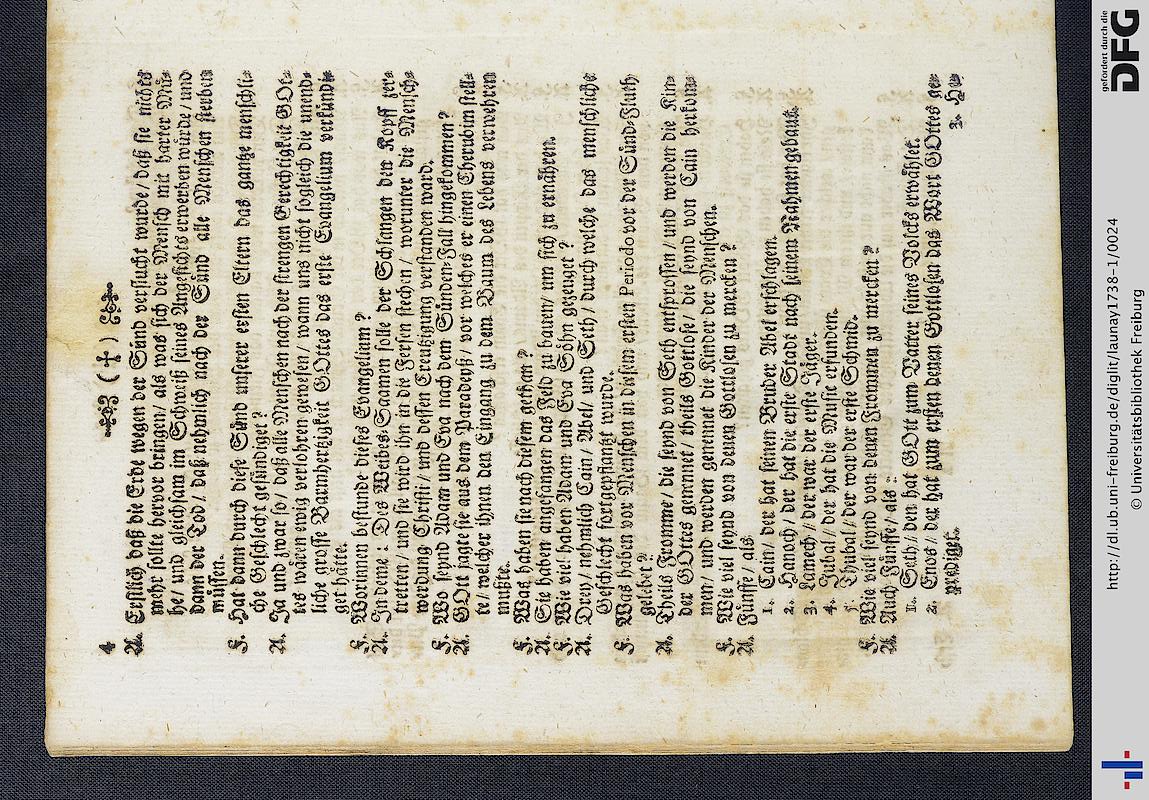 4 ( † )
A. Erstlich daß die Erde wegen der Sünd versucht wurde / daß sie nichts
mehr sollte hervor bringen / als was sich der Mensch mit harter Mü-
he / und gleichsam im Schweiß seines Angesichts erwerben würde / und
dann der Tod / daß nehmlich nach der Sünd alle Menschen sterben
müssen.
F. Hat dann durch diese Sünd unserer ersten Eltern das gantze menschli-
che Geschlecht gesündiget?
A. Ja und zwar so / daß alle Menschen nach der strengen Gerechtigkeit GOt-
tes wären ewig verlohren gewesen / wann uns nicht sogleich die unend-
liche grosse Barmhertzigkeit GOttes das erste Evangelium verkündi-
get hätte.
F. Worinnen bestunde dieses Evangelium?
A. In deme: Des Weibes-Saamen solle der Schlangen den Kopff zer-
tretten / und sie wird ihn in die Fersen stechen / worunter die Mensch-
werdung Christi / und dessen Creutzigung verstanden ward.
F. Wo seynd Adam und Eva nach dem Sünden-Fall hingekommen?
A. GOtt jagte sie aus dem Paradeyß / vor welches er einen Cherubim stell-
te / welcher ihnen den Eingang zu dem Baum des Lebens verwehren
mußte.
F. Was haben sie nach diesem gethan?
A. Sie haben angefangen das Feld zu bauen / um sich zu ernähren.
F. Wie viel haben Adam und Eva Söhn gezeuget?
A. Drey / nehmlich Cain / Abel / und Seth / durch welche das menschliche
Geschlecht fortgepflantzt wurde.
F. Was haben vor Menschen in diesem ersten Periodo vor der Sünd-Fluth
gelebet?
A. Theils Fromme / die seynd von Seth entsprossen / und werden die Kin-
der GOttes genennet / theils Gottlose / die seynd von Cain herkom-
men / und werden genennet die Kinder der Menschen.
F. Wie viel seynd von denen Gottlosen zu mercken?
A. Fünffe / als:
1. Cain / der hat seinen Bruder Abel erschlagen.
2. Hanoch / der hat die erste Stadt nach seinem Nahmen gebaut.
3. Lamech / der war der erste Jäger.
4. Jubal / der hat die Music erfunden.
5. Thibal / der war der erste Schmid.
F. Wie viel seynd von denen Frommen zu mercken?
A. Auch Fünffe / als:
1. Seth / den hat GOtt zum Vatter seines Volcks erwählet.
2. Enos / der hat zum ersten denen Gottlosen das Wort GOttes ge-
prediget.
3. He-
gefördert durch die
DFG
http://dl.ub.uni-freiburg.de/diglit/launay1738-1/0024
© Universitätsbibliothek Freiburg